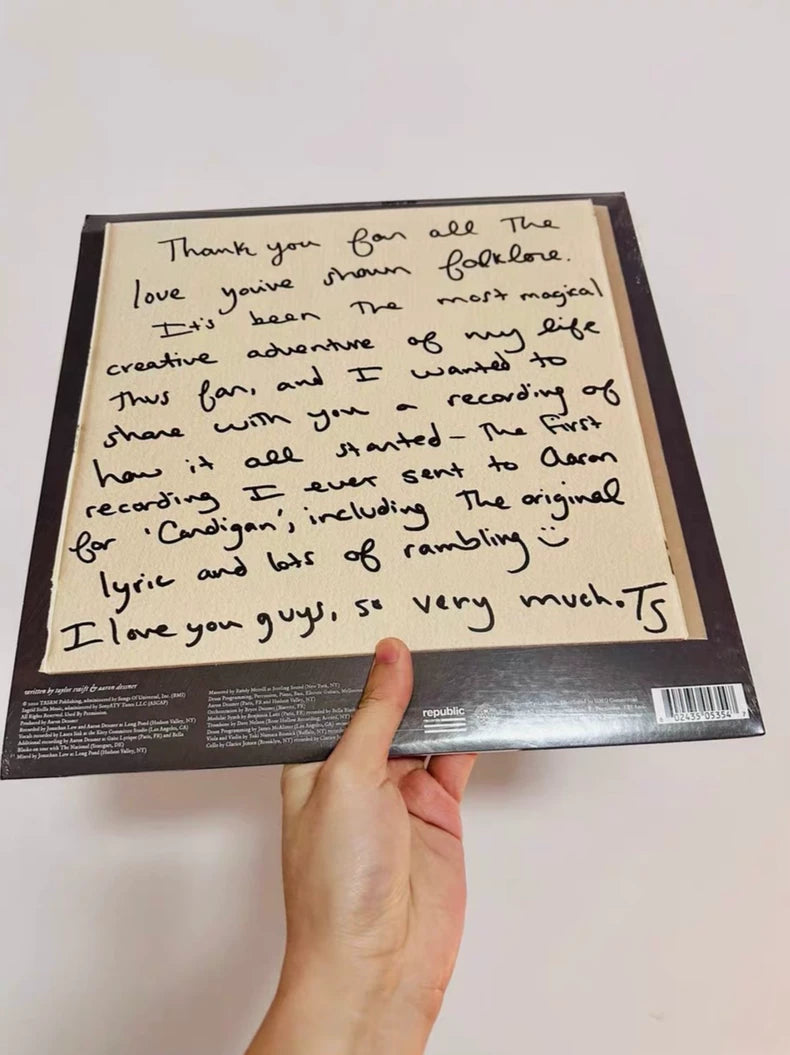 Thank you for all the
love you've shown folklore.
It's been the most magical
creative adventure of my life
thus far, and I wanted to
share with you a recording of
how it all started - the first
recording I ever sent to Aaron
for 'Cardigan', including the original
lyric and lots of rambling :)
I love you guys, so very much. TS
written by taylor swift & aaron dessner
© 2020 TASRM Publishing, administered by Songs Of Universal, Inc. (BMI)
Ingrid Stella Music, administered by Sony/ATV Tunes LLC (ASCAP)
All Rights Reserved. Used By Permission.
Produced by Aaron Dessner
Recorded by Jonathan Low and Aaron Dessner at Long Pond (Hudson Valley, NY)
Vocals recorded by Laura Sisk at the Kitty Committee Studio (Los Angeles, CA)
Additional recording by Aaron Dessner at Gaite Lyrique (Paris, FR) and Bella
Blasko on tour with The National
Mixed by Jonathan Low at Long Pond (Hudson Valley, NY)
Mastered by Randy Merrill at Sterling Sound (New York, NY)
Drum Programming, Percussion, Piano, Bass, Electric Guitars, Mellotron
Aaron Dessner (Paris, FR and Hudson Valley, NY)
Orchestration by Bryce Dessner (Biarritz, FR)
Modular Synth by Benjamin Lanz (Paris, FR) recorded by Bella
Trombone by Dave Nelson
Drum Programming by James McAlister (Los Angeles, CA)
Viola and Violin by Yuki Numata Resnick (Buffalo, NY)
Cello by Clarice Jensen (Brooklyn, NY)
republic
6 02435 05354 7